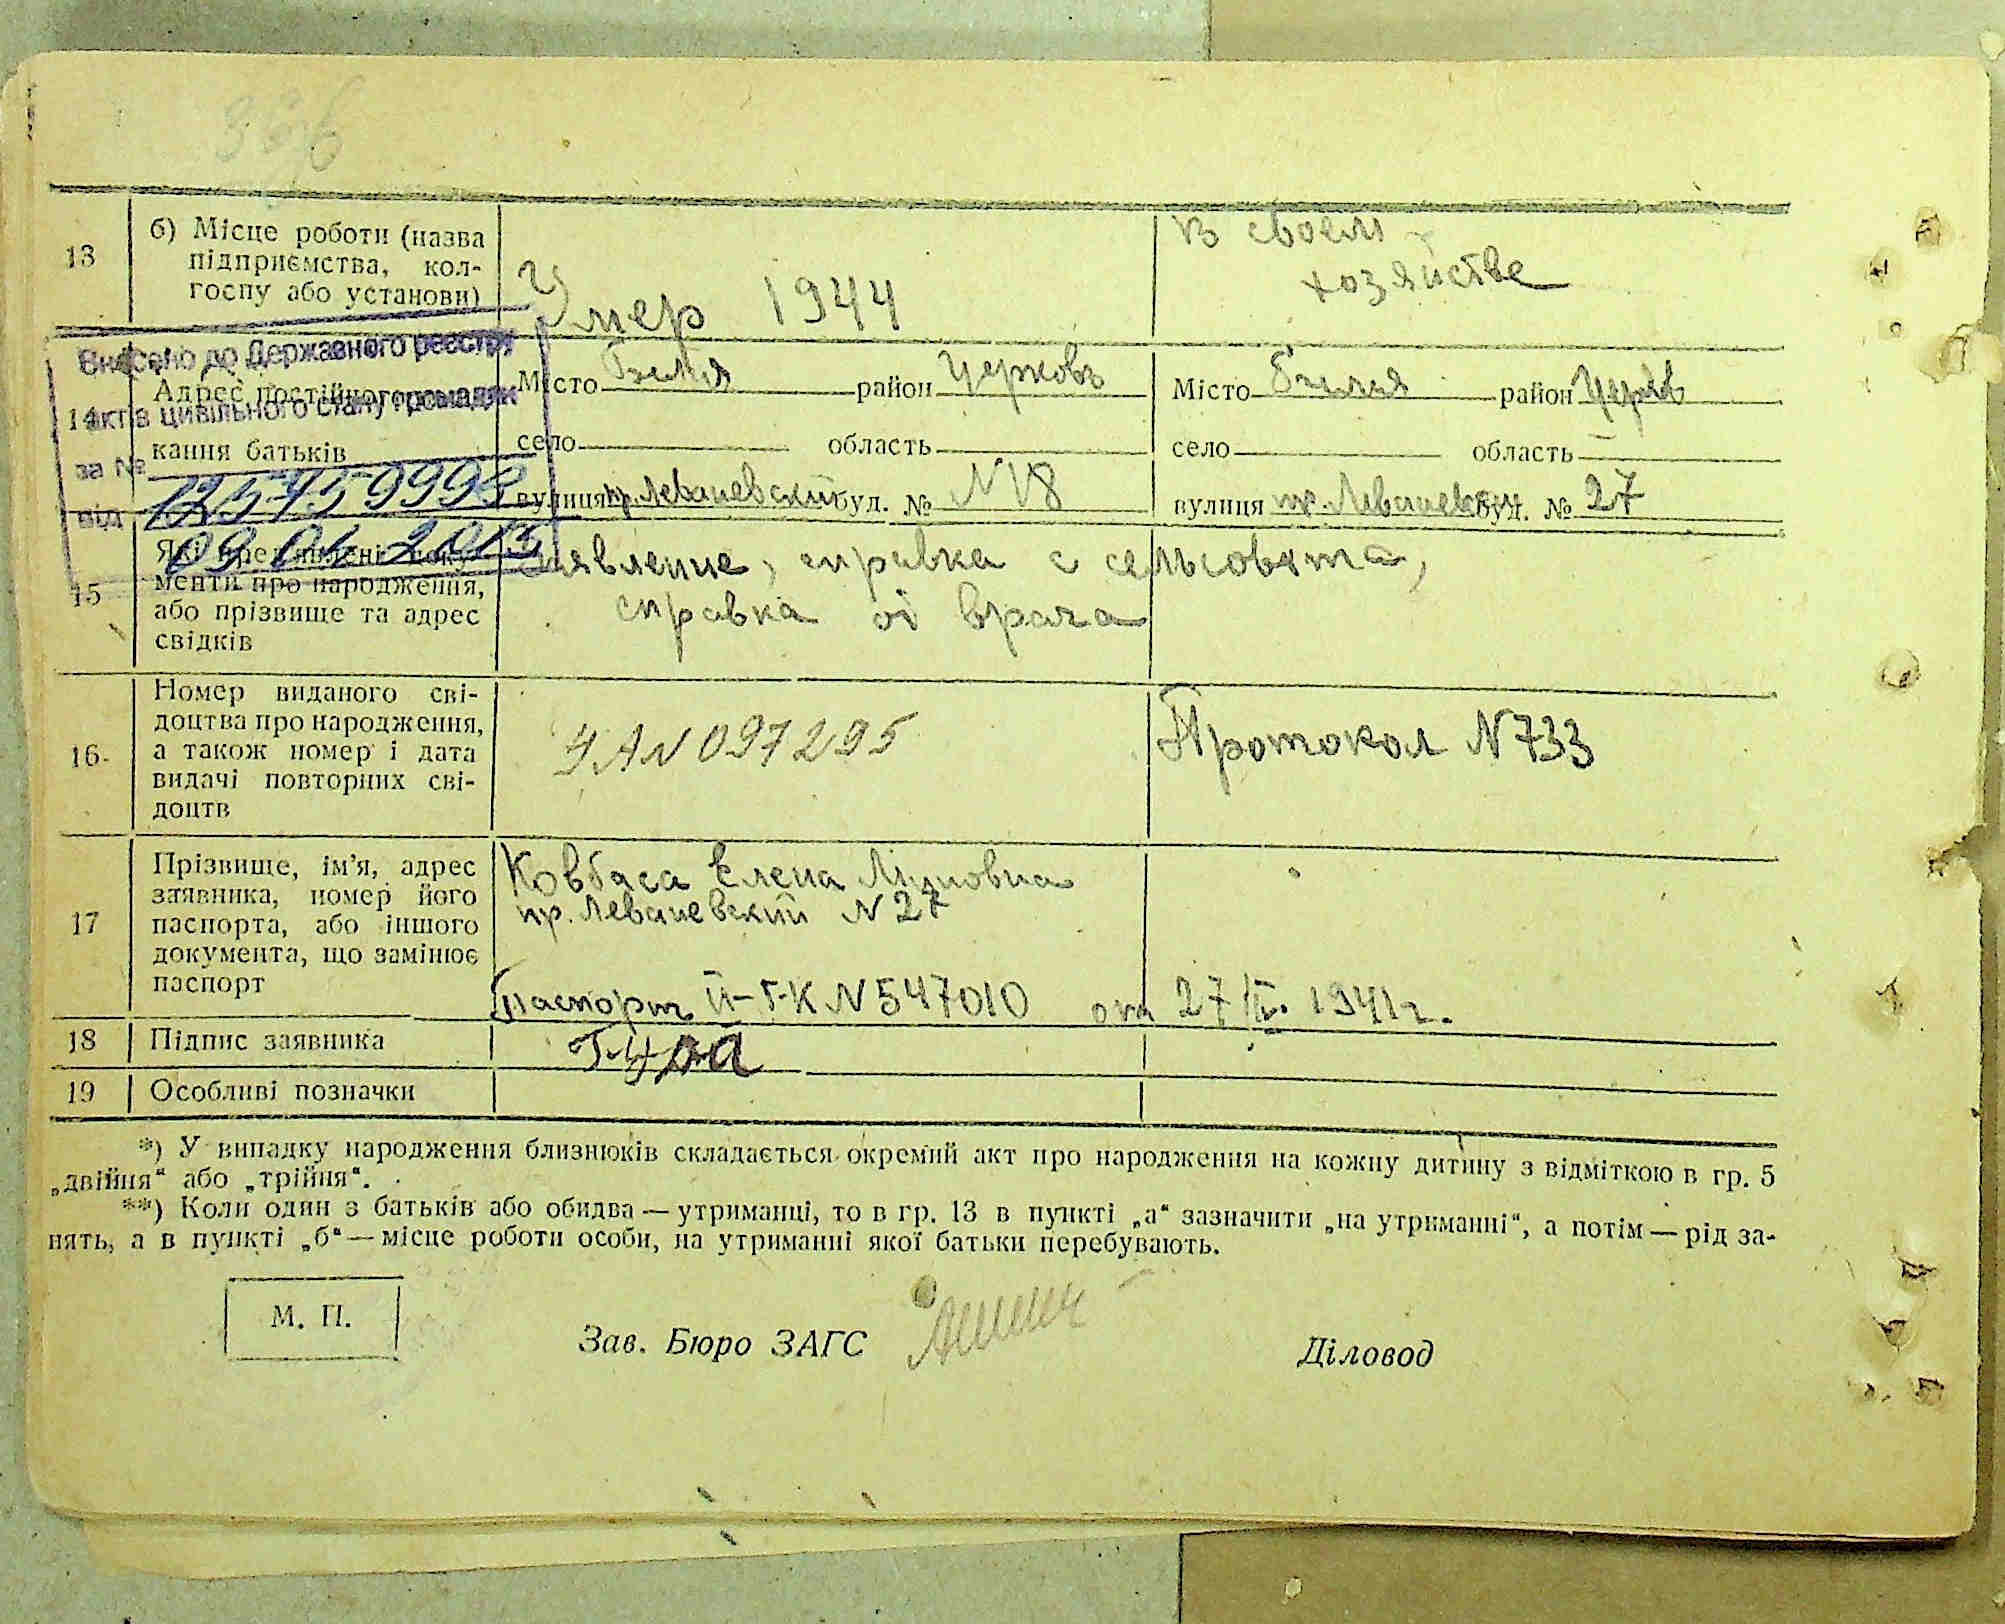 366
13
б) Місце роботи (назва
підприємства, кол-
госпу або установи)
Умер 1944
в своем
хозяйстве
Внесено до Державного реєстру
актів цивільного стану громадян
за №
від 09.01.2013
14
Адрес постійного
кання батьків
Місто Белая район Церковь
село область
вулиця пр. Леваневский буд. № N 18
Місто Белая район Церков
село область
вулиця пр. Леваневский буд. № 27
15
Які пред'явлені доку-
менти про народження,
або прізвище та адрес
свідків
Заявление, справка с сельсовета,
справка от врача
16
Номер виданого сві-
доцтва про народження,
а також номер і дата
видачі повторних сві-
доцтв
ЧА N 097295
Протокол N 733
17
Прізвище, ім'я, адрес
заявника, номер його
паспорта, або іншого
документа, що замінює
паспорт
Ковбаса Елена
пр. Леваневский N 27
Паспорт N 547010 от 27 1941 г.
18
Підпис заявника
19
Особливі позначки
*) У випадку народження близнюків складається окремий акт про народження на кожну дитину з відміткою в гр. 5
„двійня“ або „трійня“.
**) Коли один з батьків або обидва — утриманці, то в гр. 13 в пункті „а“ зазначити „на утриманні“, а потім — рід за-
нять, а в пункті „б“ — місце роботи особи, на утриманні якої батьки перебувають.
М. П.
Зав. Бюро ЗАГС
Діловод